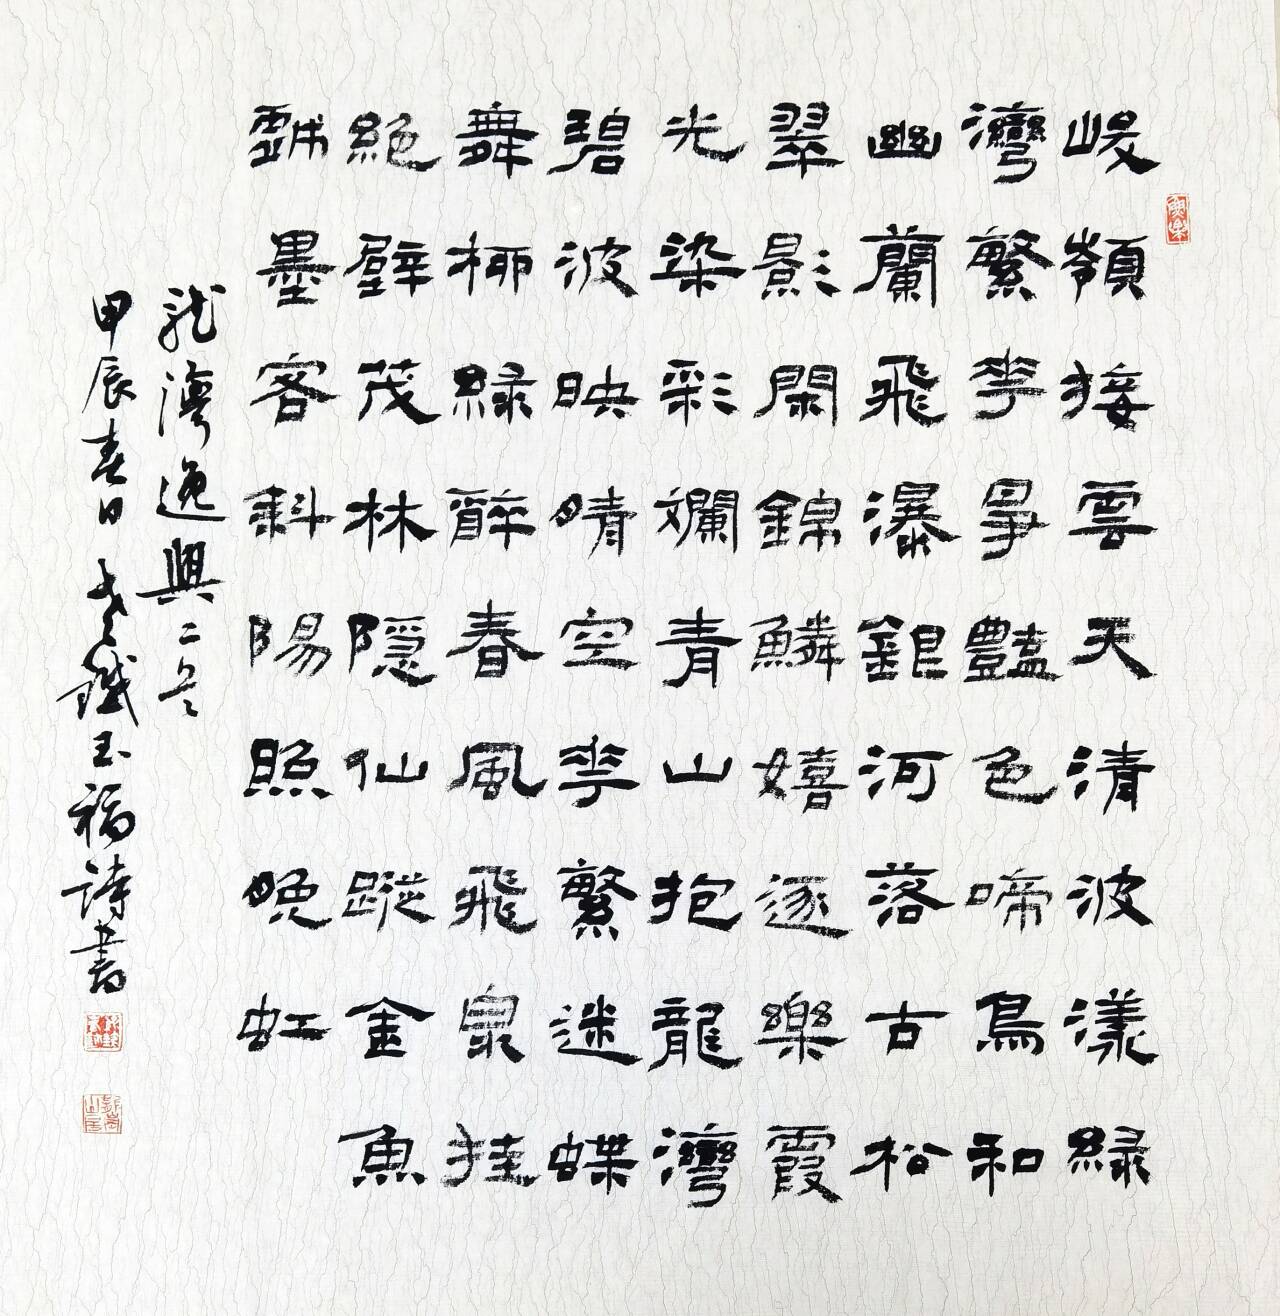 峻嶺接雲天清波漾緑
灣繁花爭豔色啼鳥和
幽蘭飛瀑銀河落古松
翠影閑錦鱗嬉逐樂霞
光染彩斕青山抱龍灣
碧波映晴空花繁迷蝶
舞柳緑醉春風飛泉挂
絶壁茂林隱仙蹤金魚
戲墨客斜陽照晚虹
龍灣逸興二首
甲辰春日鐵玉福詩書